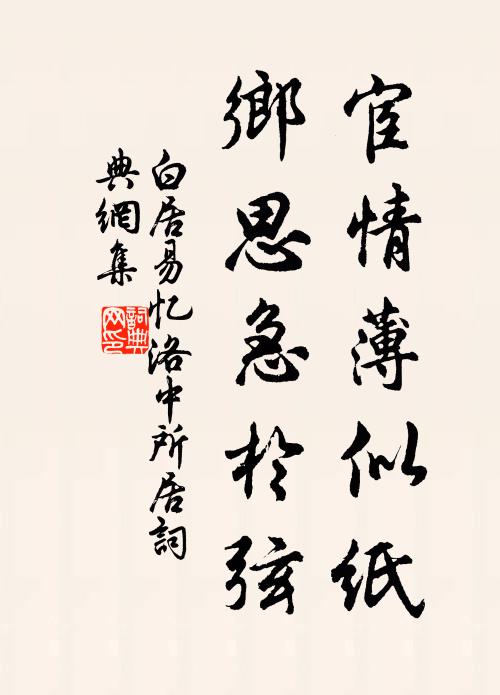 宦情薄似紙
鄉思急於弦
白居易忆洛中所居詞
典網集
詞典
网印